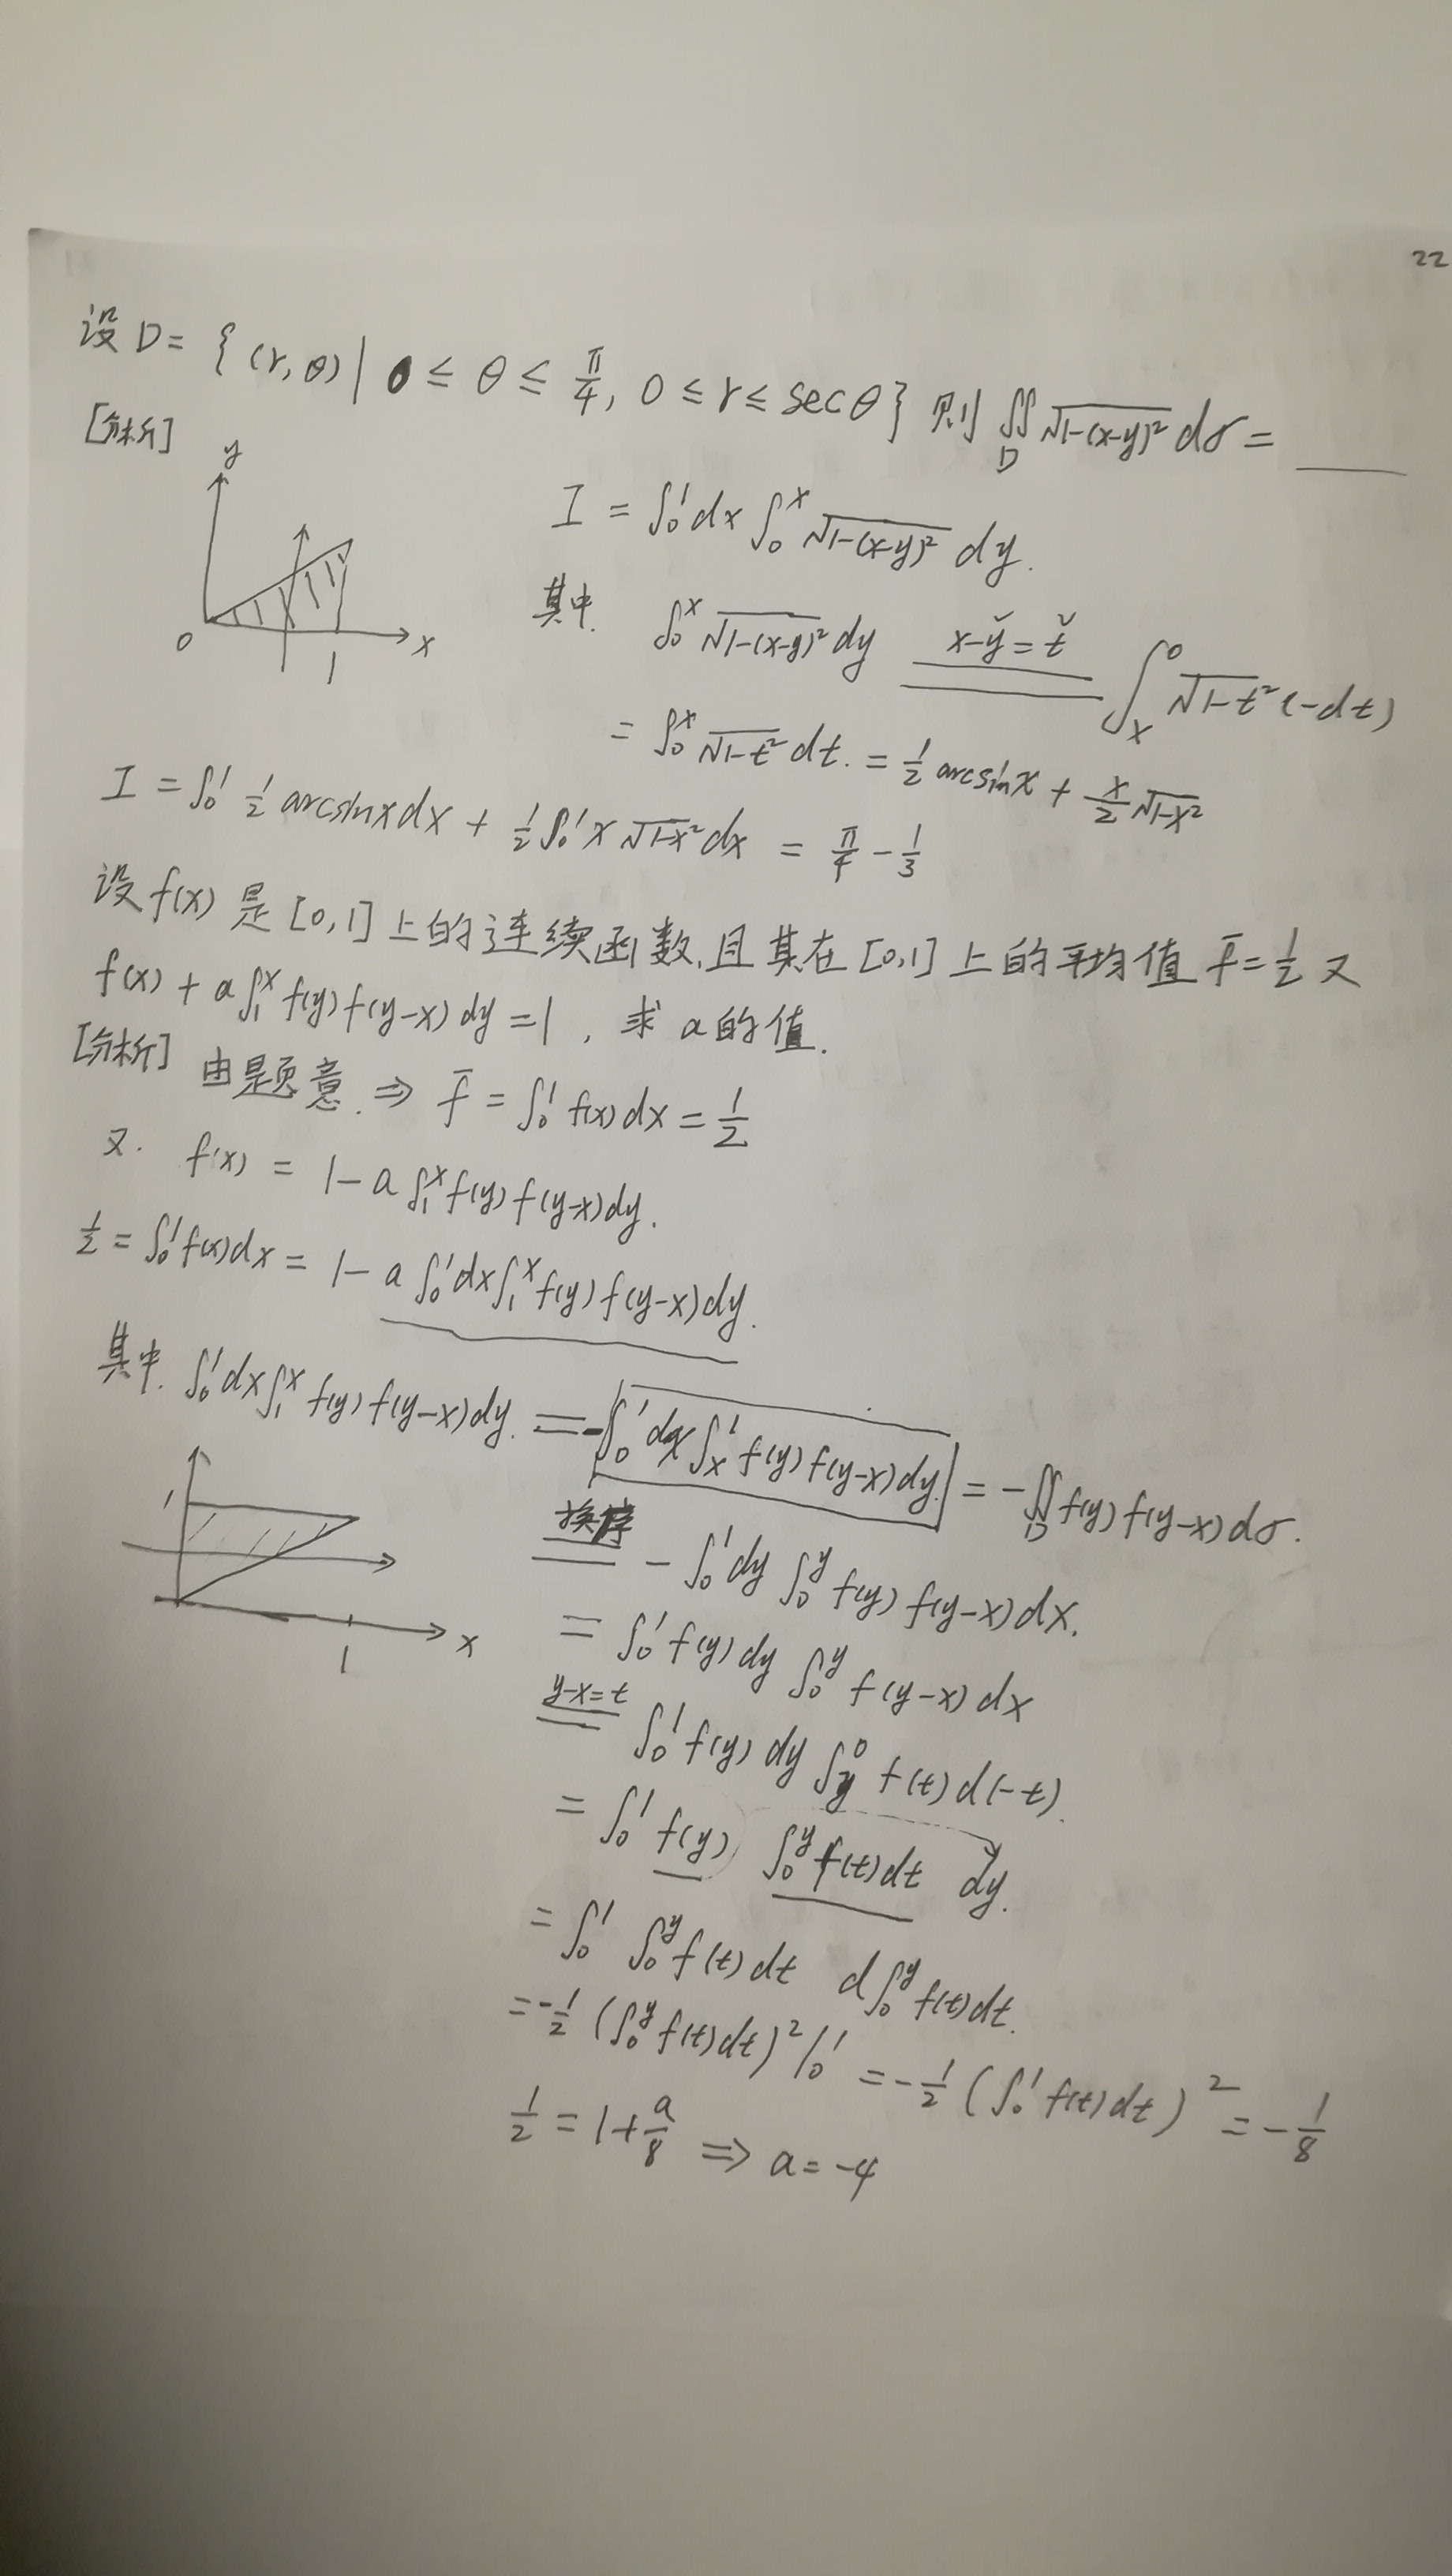 22
设 D = { (r, θ) | 0 ≤ θ ≤ π/4, 0 ≤ r ≤ secθ } 则 ∬_D √(1-(x-y)²) dσ = ____
[分析]
y
O 1 x
I = ∫₀¹ dx ∫₀ˣ √(1-(x-y)²) dy.
其中. ∫₀ˣ √(1-(x-y)²) dy  x-y=t  ∫ₓ⁰ √(1-t²) (-dt)
= ∫₀ˣ √(1-t²) dt. = 1/2 arcsinx + x/2 √(1-x²)
I = ∫₀¹ 1/2 arcsinx dx + 1/2 ∫₀¹ x √(1-x²) dx = π/4 - 1/3
设 f(x) 是 [0,1] 上的连续函数, 且其在 [0,1] 上的平均值 f̄ = 1/2 又
f(x) + a ∫₁ˣ f(y) f(y-x) dy = 1 , 求 a 的值.
[分析] 由题意. ⇒ f̄ = ∫₀¹ f(x) dx = 1/2
又. f(x) = 1 - a ∫₁ˣ f(y) f(y-x) dy.
1/2 = ∫₀¹ f(x) dx = 1 - a ∫₀¹ dx ∫₁ˣ f(y) f(y-x) dy.
其中. ∫₀¹ dx ∫₁ˣ f(y) f(y-x) dy. = - ∫₀¹ dx ∫ₓ¹ f(y) f(y-x) dy. = - ∬_D f(y) f(y-x) dσ.
1
1 x
换序 - ∫₀¹ dy ∫₀ʸ f(y) f(y-x) dx.
= ∫₀¹ f(y) dy ∫₀ʸ f(y-x) dx
y-x=t ∫₀¹ f(y) dy ∫ᵧ⁰ f(t) d(-t).
= ∫₀¹ f(y) ∫₀ʸ f(t) dt dy.
= ∫₀¹ ∫₀ʸ f(t) dt d∫₀ʸ f(t) dt.
= -1/2 (∫₀ʸ f(t) dt)² |₀¹ = -1/2 (∫₀¹ f(t) dt)² = -1/8
1/2 = 1 + a/8 ⇒ a = -4